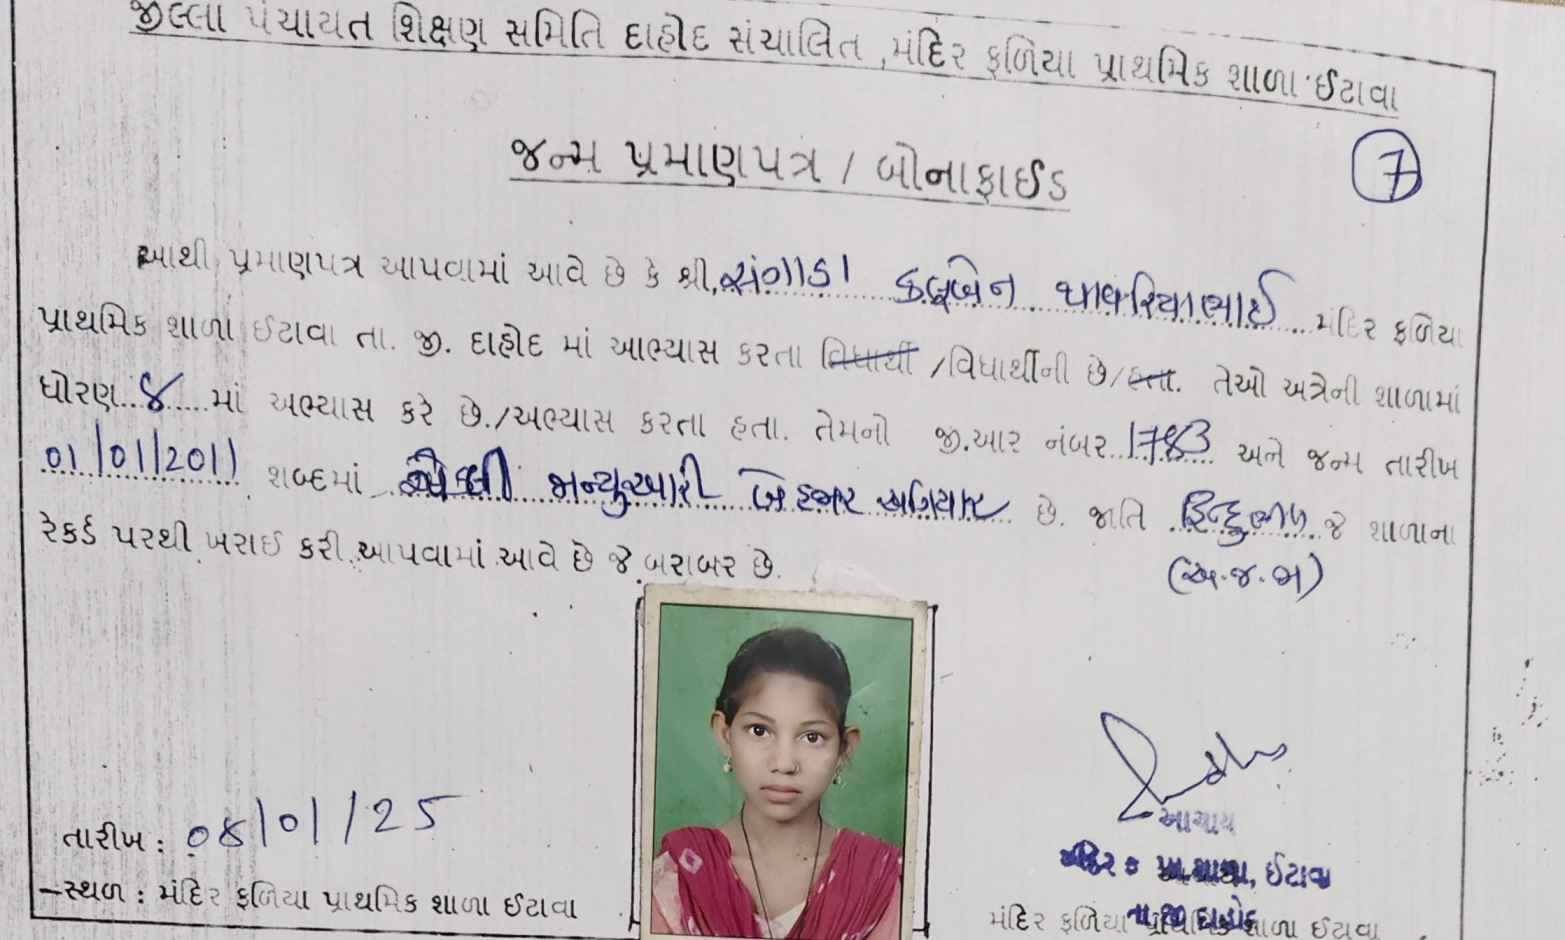 જીલ્લા પંચાયત શિક્ષણ સમિતિ દાહોદ સંચાલિત ,મંદિર ફળિયા પ્રાથમિક શાળા ઈટાવા
જન્મ પ્રમાણપત્ર / બોનાફાઈડ
7
આથી પ્રમાણપત્ર આપવામાં આવે છે કે શ્રી, સંગાડા કલુબેન થાવરિયાભાઈ મંદિર ફળિયા
પ્રાથમિક શાળા ઈટાવા તા. જી. દાહોદ માં આભ્યાસ કરતા વિધાર્થી /વિધાર્થીની છે/હતા. તેઓ અત્રેની શાળામાં
ધોરણ..૪.....માં અભ્યાસ કરે છે./અભ્યાસ કરતા હતા. તેમનો જી.આર નંબર અને જન્મ તારીખ
01/01/2011 શબ્દમાં પેહલી જાન્યુઆરી બે હજાર અગિયાર છે. જાતિ હિન્દુભીલ જે શાળાના
(અ.જ.જા)
રેકર્ડ પરથી ખરાઈ કરી આપવામાં આવે છે જે બરાબર છે.
તારીખ : 08/01/25
સ્થળ : મંદિર ફળિયા પ્રાથમિક શાળા ઈટાવા
આચાર્ય
મંદિર ફ પ્રા.શાળા, ઈટાવા
તા.જી દાહોદ
મંદિર ફળિયા પ્રાથમિક શાળા ઈટાવા